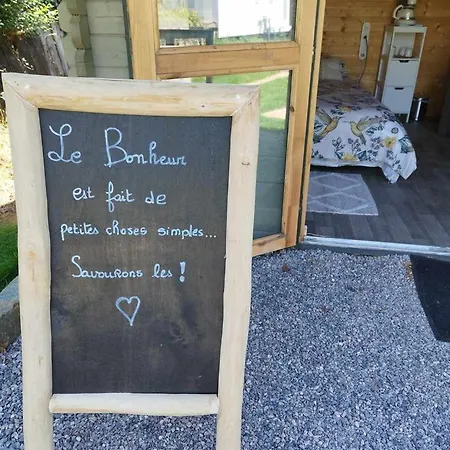 Le Bonheur
est fait de
petites choses simples...
Savourons les !